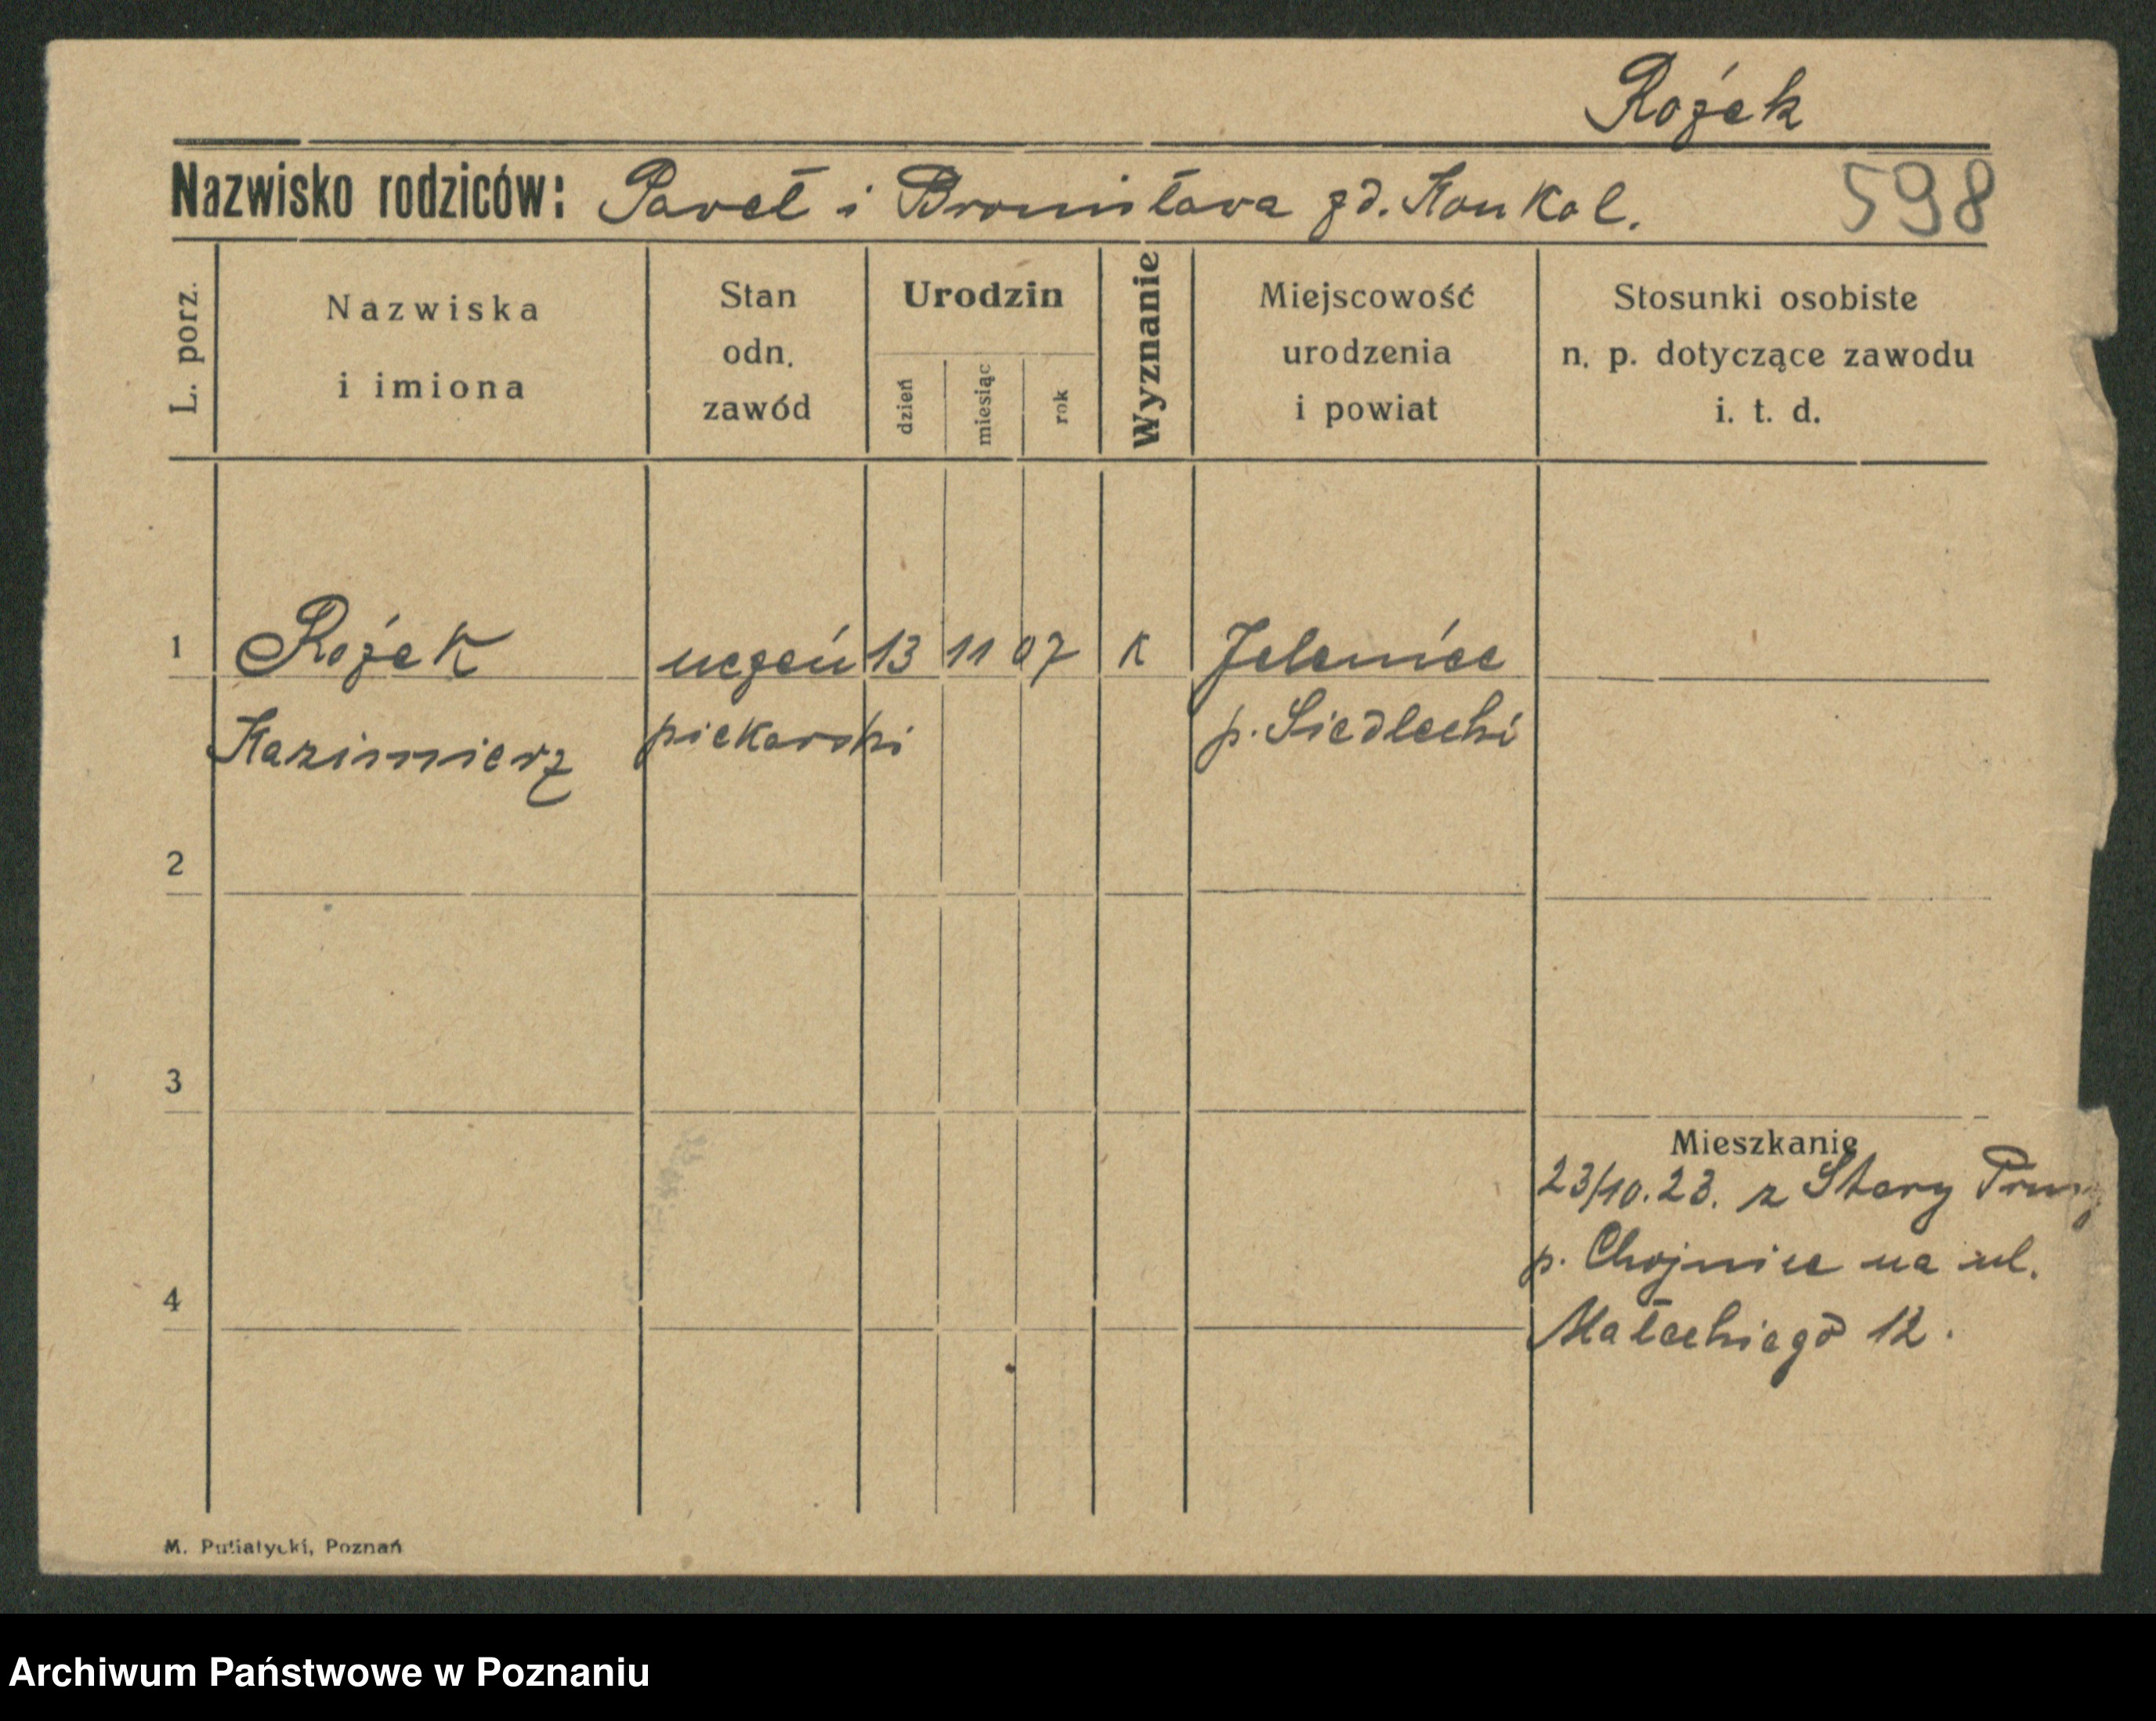 Rożek
Nazwisko rodziców: Paveł i Bronisłava zd. Konkol.
598
L. porz.
Nazwiska
i imiona
Stan
odn.
zawód
Urodzin
dzień
miesiąc
rok
Wyznanie
Miejscowość
urodzenia
i powiat
Stosunki osobiste
n. p. dotyczące zawodu
i. t. d.
1 Rożek uczeń 13 11 07 K Jeleniec
Kazimierz piekarski p. Siedlecki
2
3
Mieszkanie
23/10.23. z Stary
p. Chojnice na ul.
4
Małeckiego 12.
M. Putiatycki, Poznań
Archiwum Państwowe w Poznaniu